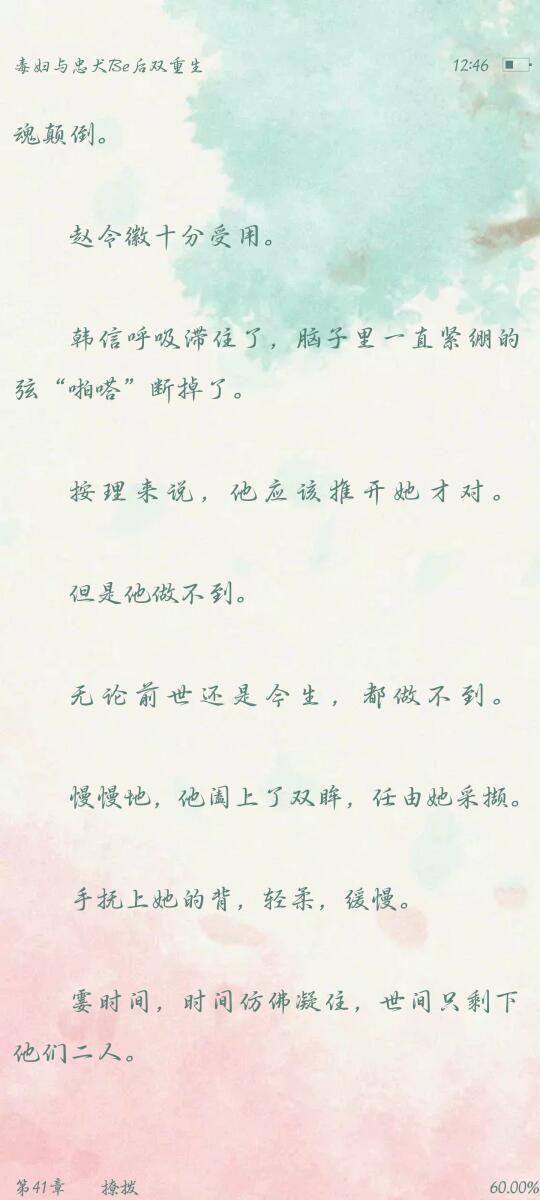 毒妇与忠犬Be后双重生 12:46
魂颠倒。
赵令徽十分受用。
韩信呼吸滞住了，脑子里一直紧绷的
弦“啪嗒”断掉了。
按理来说，他应该推开她才对。
但是他做不到。
无论前世还是今生，都做不到。
慢慢地，他阖上了双眸，任由她采撷。
手抚上她的背，轻柔，缓慢。
霎时间，时间仿佛凝住，世间只剩下
他们二人。
第41章 撩拨 60.00%